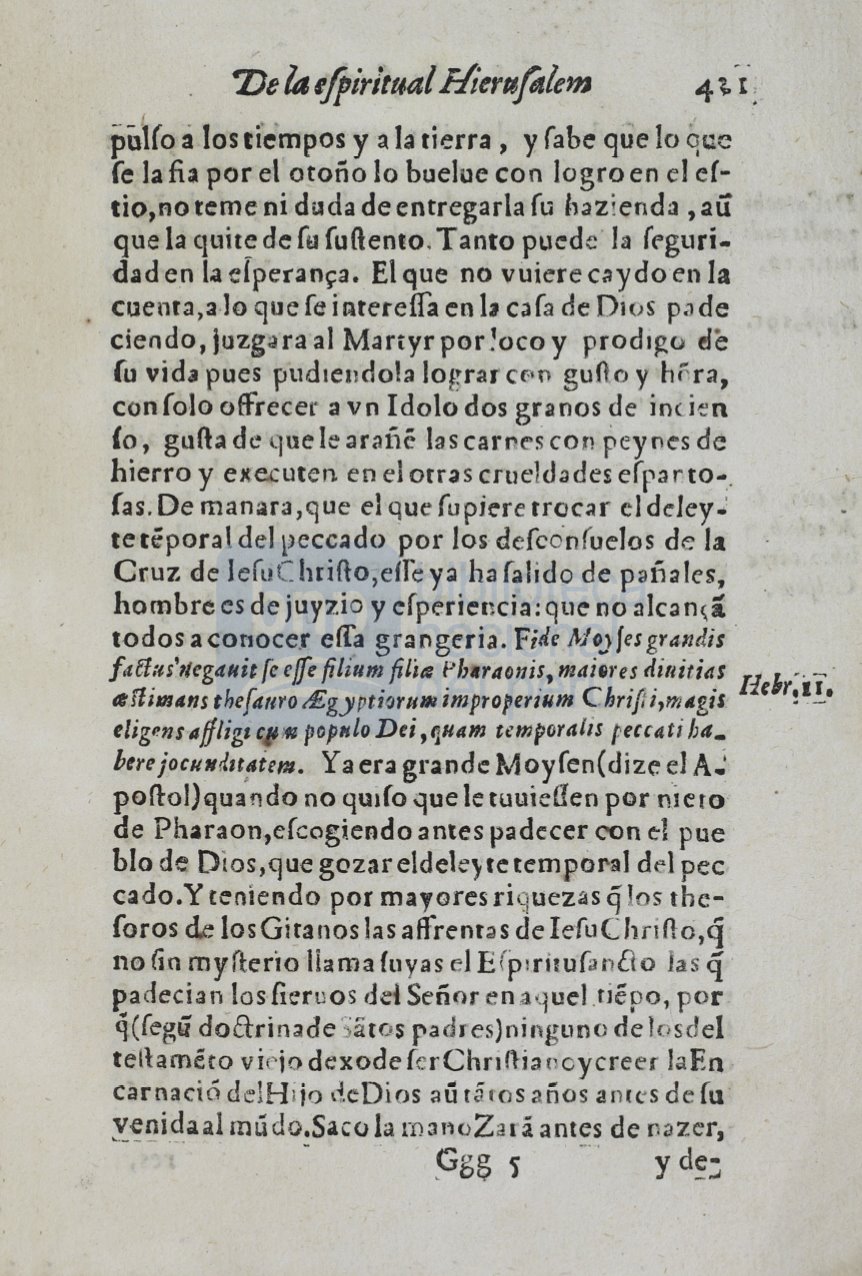 De la eſpiritual Hieruſalem 421
pulſo a los tiempos y a la tierra, y ſabe que lo que
ſe la fia por el otoño lo buelue con logro en el eſ-
tio, no teme ni duda de entregarla ſu hazienda, aũ
que la quite de ſu ſuſtento. Tanto puede la ſeguri-
dad en la eſperança. El que no vuiere caydo en la
cuenta, a lo que ſe intereſſa en la caſa de Dios pade
ciendo, juzgara al Martyr por loco y prodigo de
ſu vida pues pudiendola lograr con guſto y hõra,
con ſolo offrecer a vn Idolo dos granos de incien
ſo, guſta de que le arañẽ las carnes con peynes de
hierro y executen en el otras crueldades eſpanto-
ſas. De manara, que el que ſupiere trocar el deley-
te tẽporal del peccado por los deſconſuelos de la
Cruz de IeſuChriſto, eſſe ya ha ſalido de pañales,
hombre es de juyzio y eſperiencia: que no alcançã
todos a conocer eſſa grangeria. Fide Moyſes grandis
factus negauit ſe eſſe filium filiæ Pharaonis, maiores diuitias
æſtimans theſauro Ægyptiorum improperium Chriſti, magis
eligens affligi cum populo Dei, quam temporalis peccati ha-
bere jocunditatem. Ya era grande Moyſen (dize el A-
poſtol) quando no quiſo que le tuuieſſen por nieto
de Pharaon, eſcogiendo antes padecer con el pue
blo de Dios, que gozar el deleyte temporal del pec
cado. Y teniendo por mayores riquezas q̃ los the-
ſoros de los Gitanos las affrentas de IeſuChriſto, q̃
no ſin myſterio llama ſuyas el Eſpirituſancto las q̃
padecian los ſieruos del Señor en aquel tiẽpo, por
q̃ (ſegũ doctrina de sãtos padres) ninguno de los del
teſtamẽto viejo dexo de ſer Chriſtiano y creer la En
carnació del Hijo de Dios aũ tãtos años antes de ſu
venida al mũdo. Saco la mano Zarã antes de nazer,
Ggg 5 y de-
Hebr. 11.